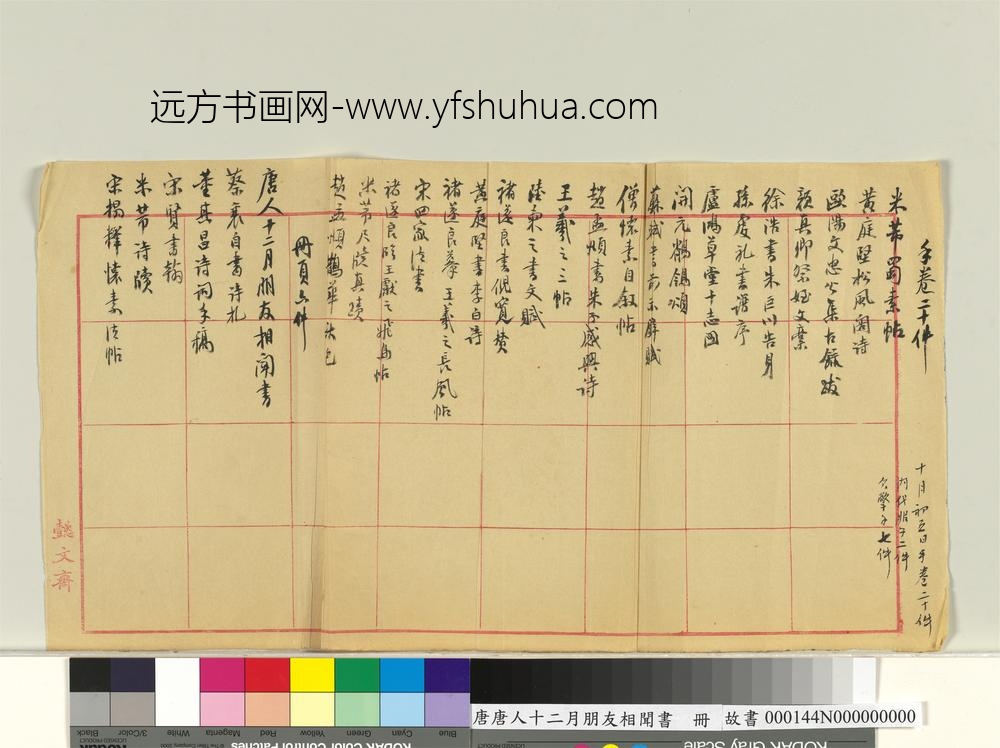 远方书画网-www.yfshuhua.com
手卷二十件
米芾蜀素帖
黄庭堅松風閣詩
歐陽文忠公集古錄跋
顏真卿祭姪文藁
徐浩書朱巨川告身
孫虔礼書譜序
盧鴻草堂十志圖
開元鶺鴒頌
蘇軾書前赤壁賦
僧懷素自叙帖
趙孟頫書朱子感興詩
王羲之三帖
陸柬之書文賦
褚遂良書倪寬贊
黄庭堅書李白詩
褚遂良摹王羲之長風帖
宋四家法書
褚遂良臨王獻之飛鳥帖
米芾尺牘真蹟
趙孟頫鵲華秋色
冊頁六件
唐人十二月朋友相聞書
蔡襄自書诗札
董其昌诗词手稿
宋賢書翰
米芾诗牘
宋搨釋懷素法帖
十月初五日手卷二十件
七件
懿文齋
唐唐人十二月朋友相聞書 冊 故書 000144N000000000
Black
3/Color
White
Magenta
Red
Yellow
Green
Cyan
Blue
KODAK Color Control Patches
KODAK Gray Scale